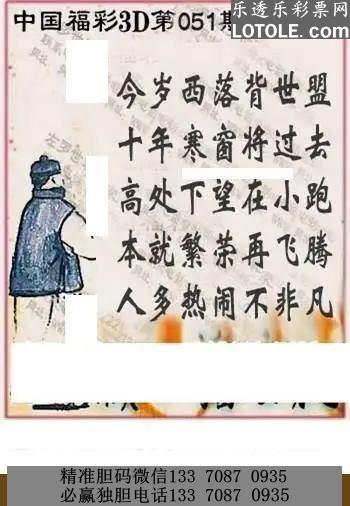 中国福彩3D第051期
乐透乐彩票网
LOTOLE.COM
今岁西落背世盟
十年寒窗将过去
高处下望在小跑
本就繁荣再飞腾
人多热闹不非凡
精准胆码微信133 7087 0935
必赢独胆电话133 7087 0935